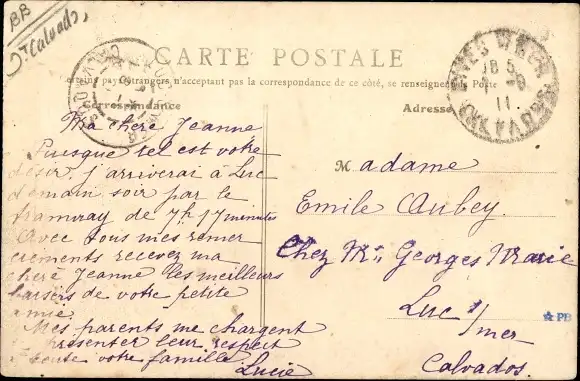 BB
Calvados,
CARTE POSTALE
Certains pays étrangers n'acceptant pas la correspondance de ce côté, se renseigner à la Poste
Correspondance
Adresse
Ma chère Jeanne,
Puisque tel est votre
désir, j'arriverai à Luc
demain soir par le
tramway de 7h 17 minutes
Avec tous mes remer
ciements recevez ma
chère Jeanne les meilleurs
baisers de votre petite
amie.
Mes parents me chargent
présenter leur respect
à toute votre famille.
Lucie
Madame
Emile Aubey.
Chez Mr. Georges Marie
Luc s/
mer
Calvados.
CALVADOS
11
PB